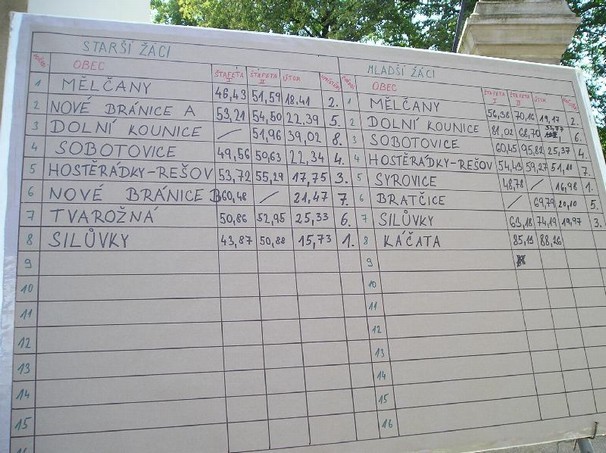 STARŠÍ ŽÁCI
OBEC ŠTAFETA I ŠTAFETA II ÚTOK
1 MĚLČANY 46,43 51,59 18.41 2.
2 NOVÉ BRÁNICE A 53,21 54,50 22,39 5.
3 DOLNÍ KOUNICE / 51,96 39,02 8.
4 SOBOTOVICE 49,56 50,63 22,34 4.
5 HOSTĚRÁDKY-REŠOV 53,72 55,29 17,75 3.
6 NOVÉ BRÁNICE B 60,48 / 21,47 7.
7 TVAROŽNÁ 50,86 52,95 25,33 6.
8 SILŮVKY 43,87 50,88 15,73 1.
9
10
11
12
13
14
15
MLADŠÍ ŽÁCI
OBEC ŠTAFETA I ŠTAFETA II ÚTOK
1 MĚLČANY 19,17 2.
2 DOLNÍ KOUNICE 81,02 68,70 6.
3 SOBOTOVICE 60,45 95,82 25,37 4.
4 HOSTĚRÁDKY-REŠOV 54,49 59,27 51,11 7.
5 SYROVICE 48,78 / 16,98 1.
6 BRATČICE / 69,79 20,10 5.
7 SILŮVKY 65,18 74,19 19,97 3.
8 KÁČATA 85,13 88,26
9
10
11
12
13
14
15
16